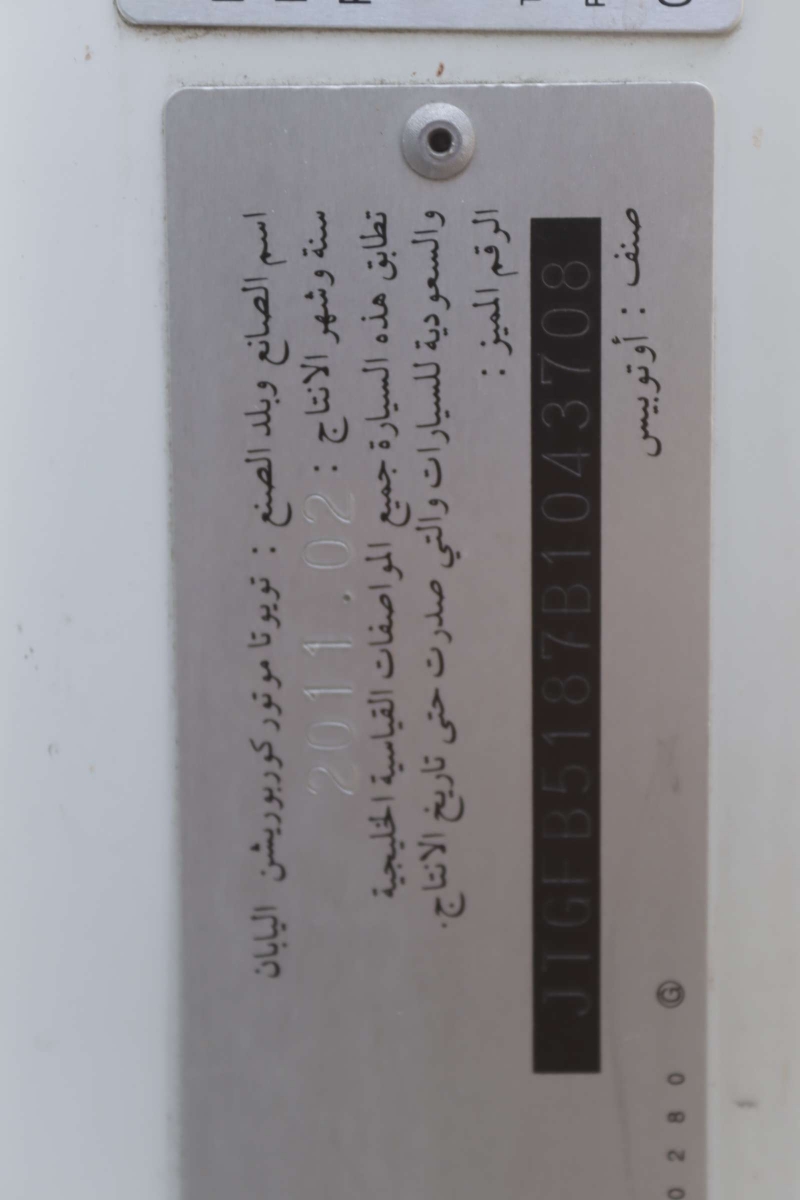 اسم الصانع وبلد الصنع : تويوتا موتور كوربوريشن اليابان
سنة وشهر الانتاج : 2011.02
تطابق هذه السيارة جميع المواصفات القياسية الخليجية
والسعودية للسيارات والتي صدرت حتى تاريخ الانتاج.
الرقم المميز :
JTGFB5187B1043708
صنف : أوتوبيس
0280 Ⓖ